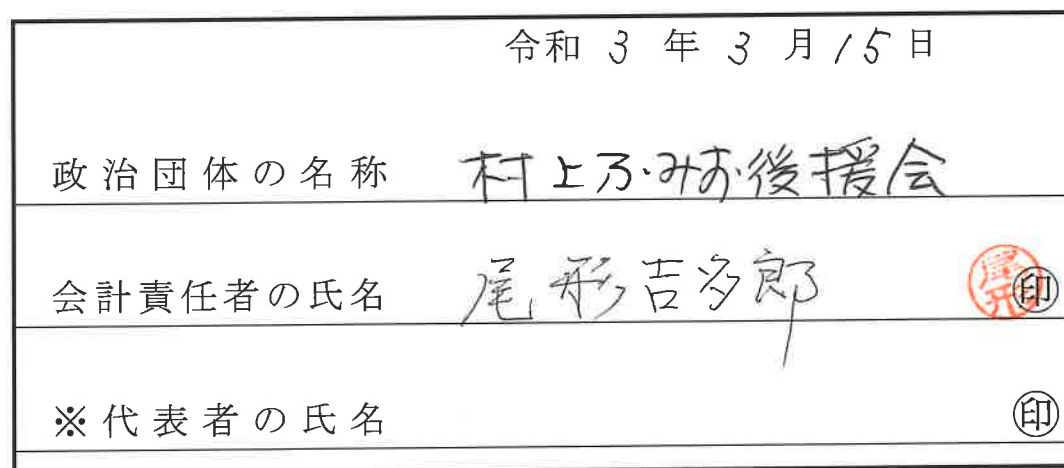 令和 3 年 3 月 15 日
政治団体の名称 村上ふみお後援会
会計責任者の氏名 尾形吉多郎 尾形 ㊞
※代表者の氏名 ㊞